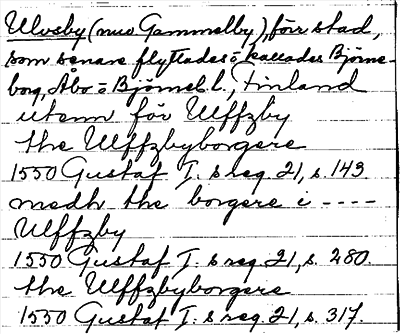 Ulvsby (nuv Gammelby), förr stad,
som senare flyttades o kallades Björne-
borg, Åbo o Björneb. l., Finland
utenn för Ulffzby
the Ulffzbyborgere
1550 Gustaf I:s reg. 21, s. 143.
medh the borgere i ----
Ulffzby
1550 Gustaf I:s reg 21, s. 280.
the Ulffzbyborgere
1550 Gustaf I:s reg 21, s. 317.